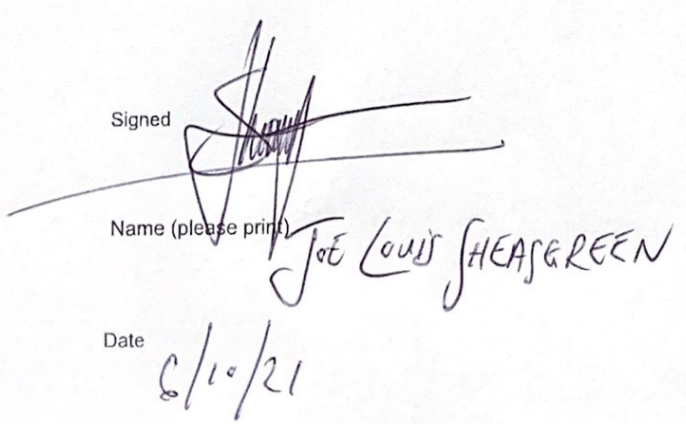 Signed
Name (please print) JOE LOUIS SHEASGREEN
Date
6/10/21